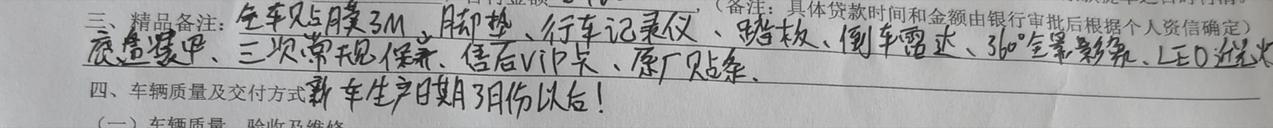 （备注：具体贷款时间和金额由银行审批后根据个人资信确定）
三、精品备注：全车贴膜3M、脚垫、行车记录仪、踏板、倒车雷达、360°全景影像、LED近光
底盘装甲、三次常规保养、售后VIP卡、原厂贴条、
四、车辆质量及交付方式新车生产日期3月份以后！
（一）车辆质量、验收及维修